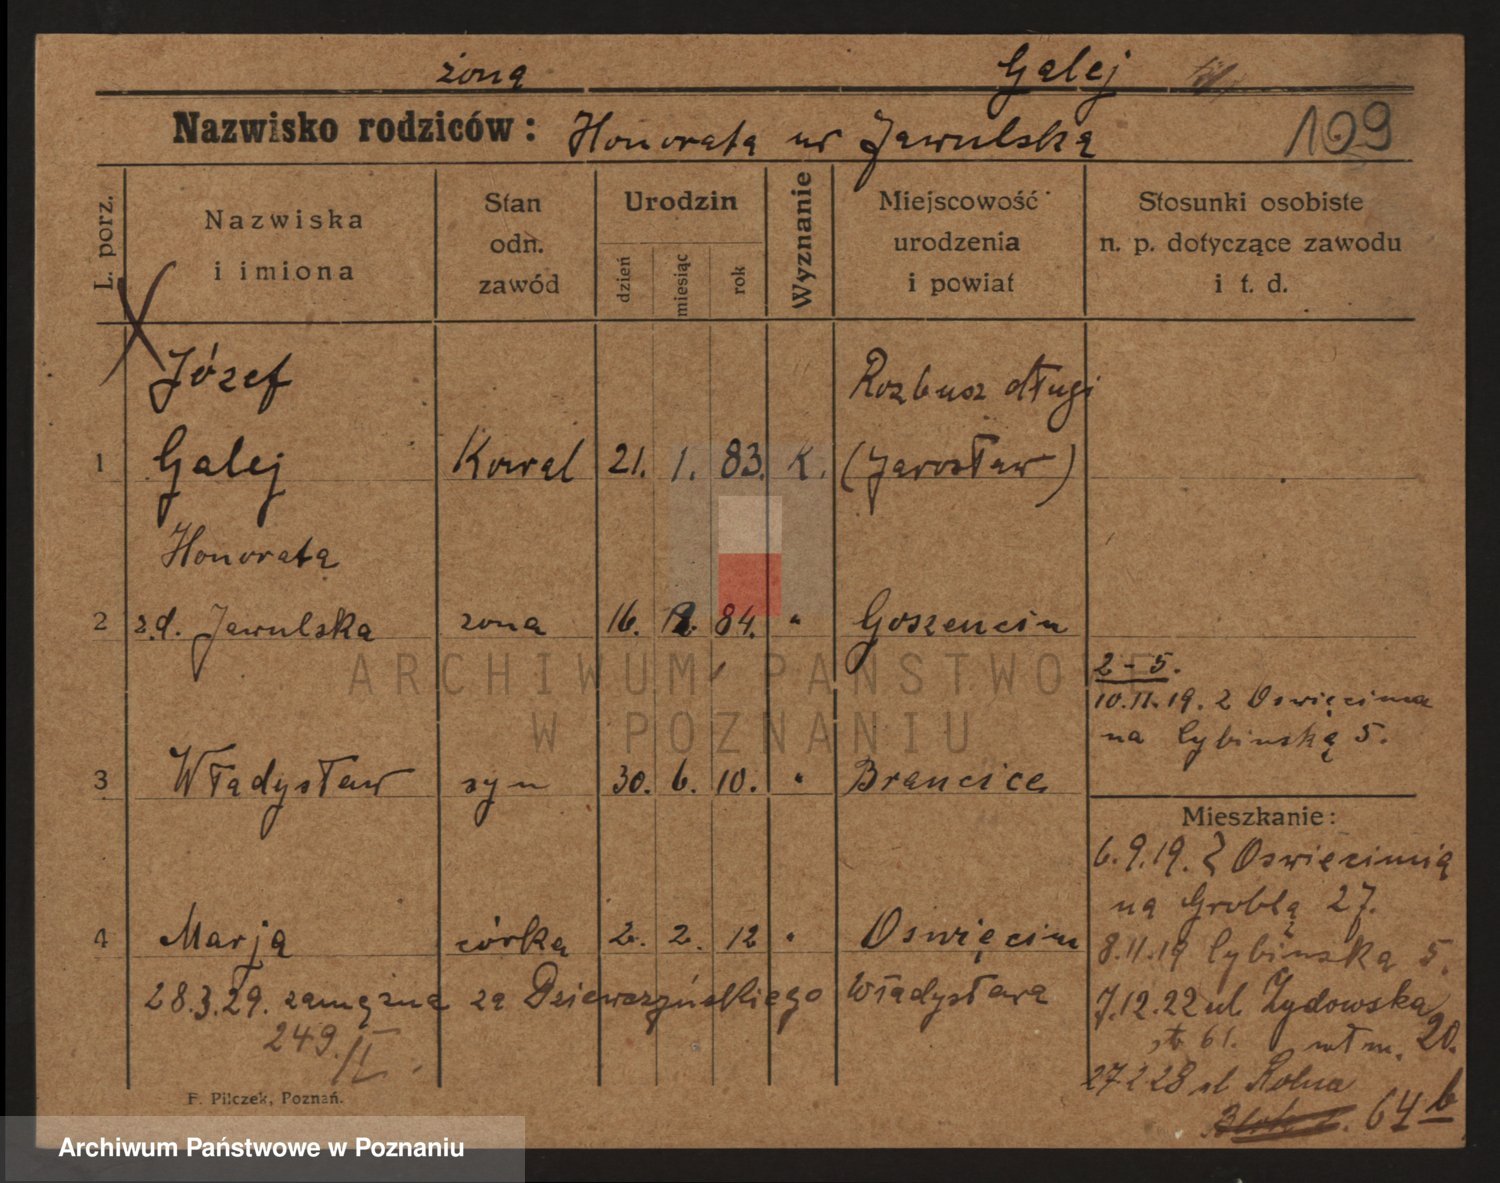 żoną Galej
Nazwisko rodziców: Honorata ur Jawulską 109
L. porz.
Nazwiska i imiona
Stan odn. zawód
Urodzin
dzień miesiąc rok
Wyznanie
Miejscowość urodzenia i powiat
Stosunki osobiste n. p. dotyczące zawodu i t. d.
Józef Rozbusz długi
1 Galej Kowal 21. 1. 83. K. (Jarosław)
Honorata
2 z.d. Jawulska zona 16. 84. " Goszencin
2-5.
10.11.19. z Oswięcima
na Cybinską 5.
3 Władysław syn 30. 6. 10. " Brancice
Mieszkanie:
6.9.19. Z Oswięcimia
na Groblą 27.
4 Marja córka 2. 2. 12 " Oswięcim
8.11.19 Cybinska 5.
28.3.29. zamęzna za Dziewczyńskiego Władysława
7.12.22 ul. Zydowska
61. wł m. 20.
249/II
27 2 28 ul Rolna
64 b
F. Pilczek, Poznań.
ARCHIWUM PAŃSTWOWE
W POZNANIU
Archiwum Państwowe w Poznaniu